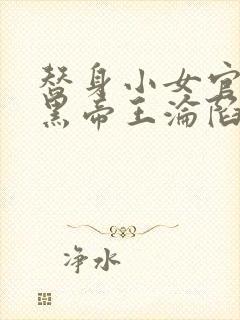 替身小女官
黑帝王沦陷
净水